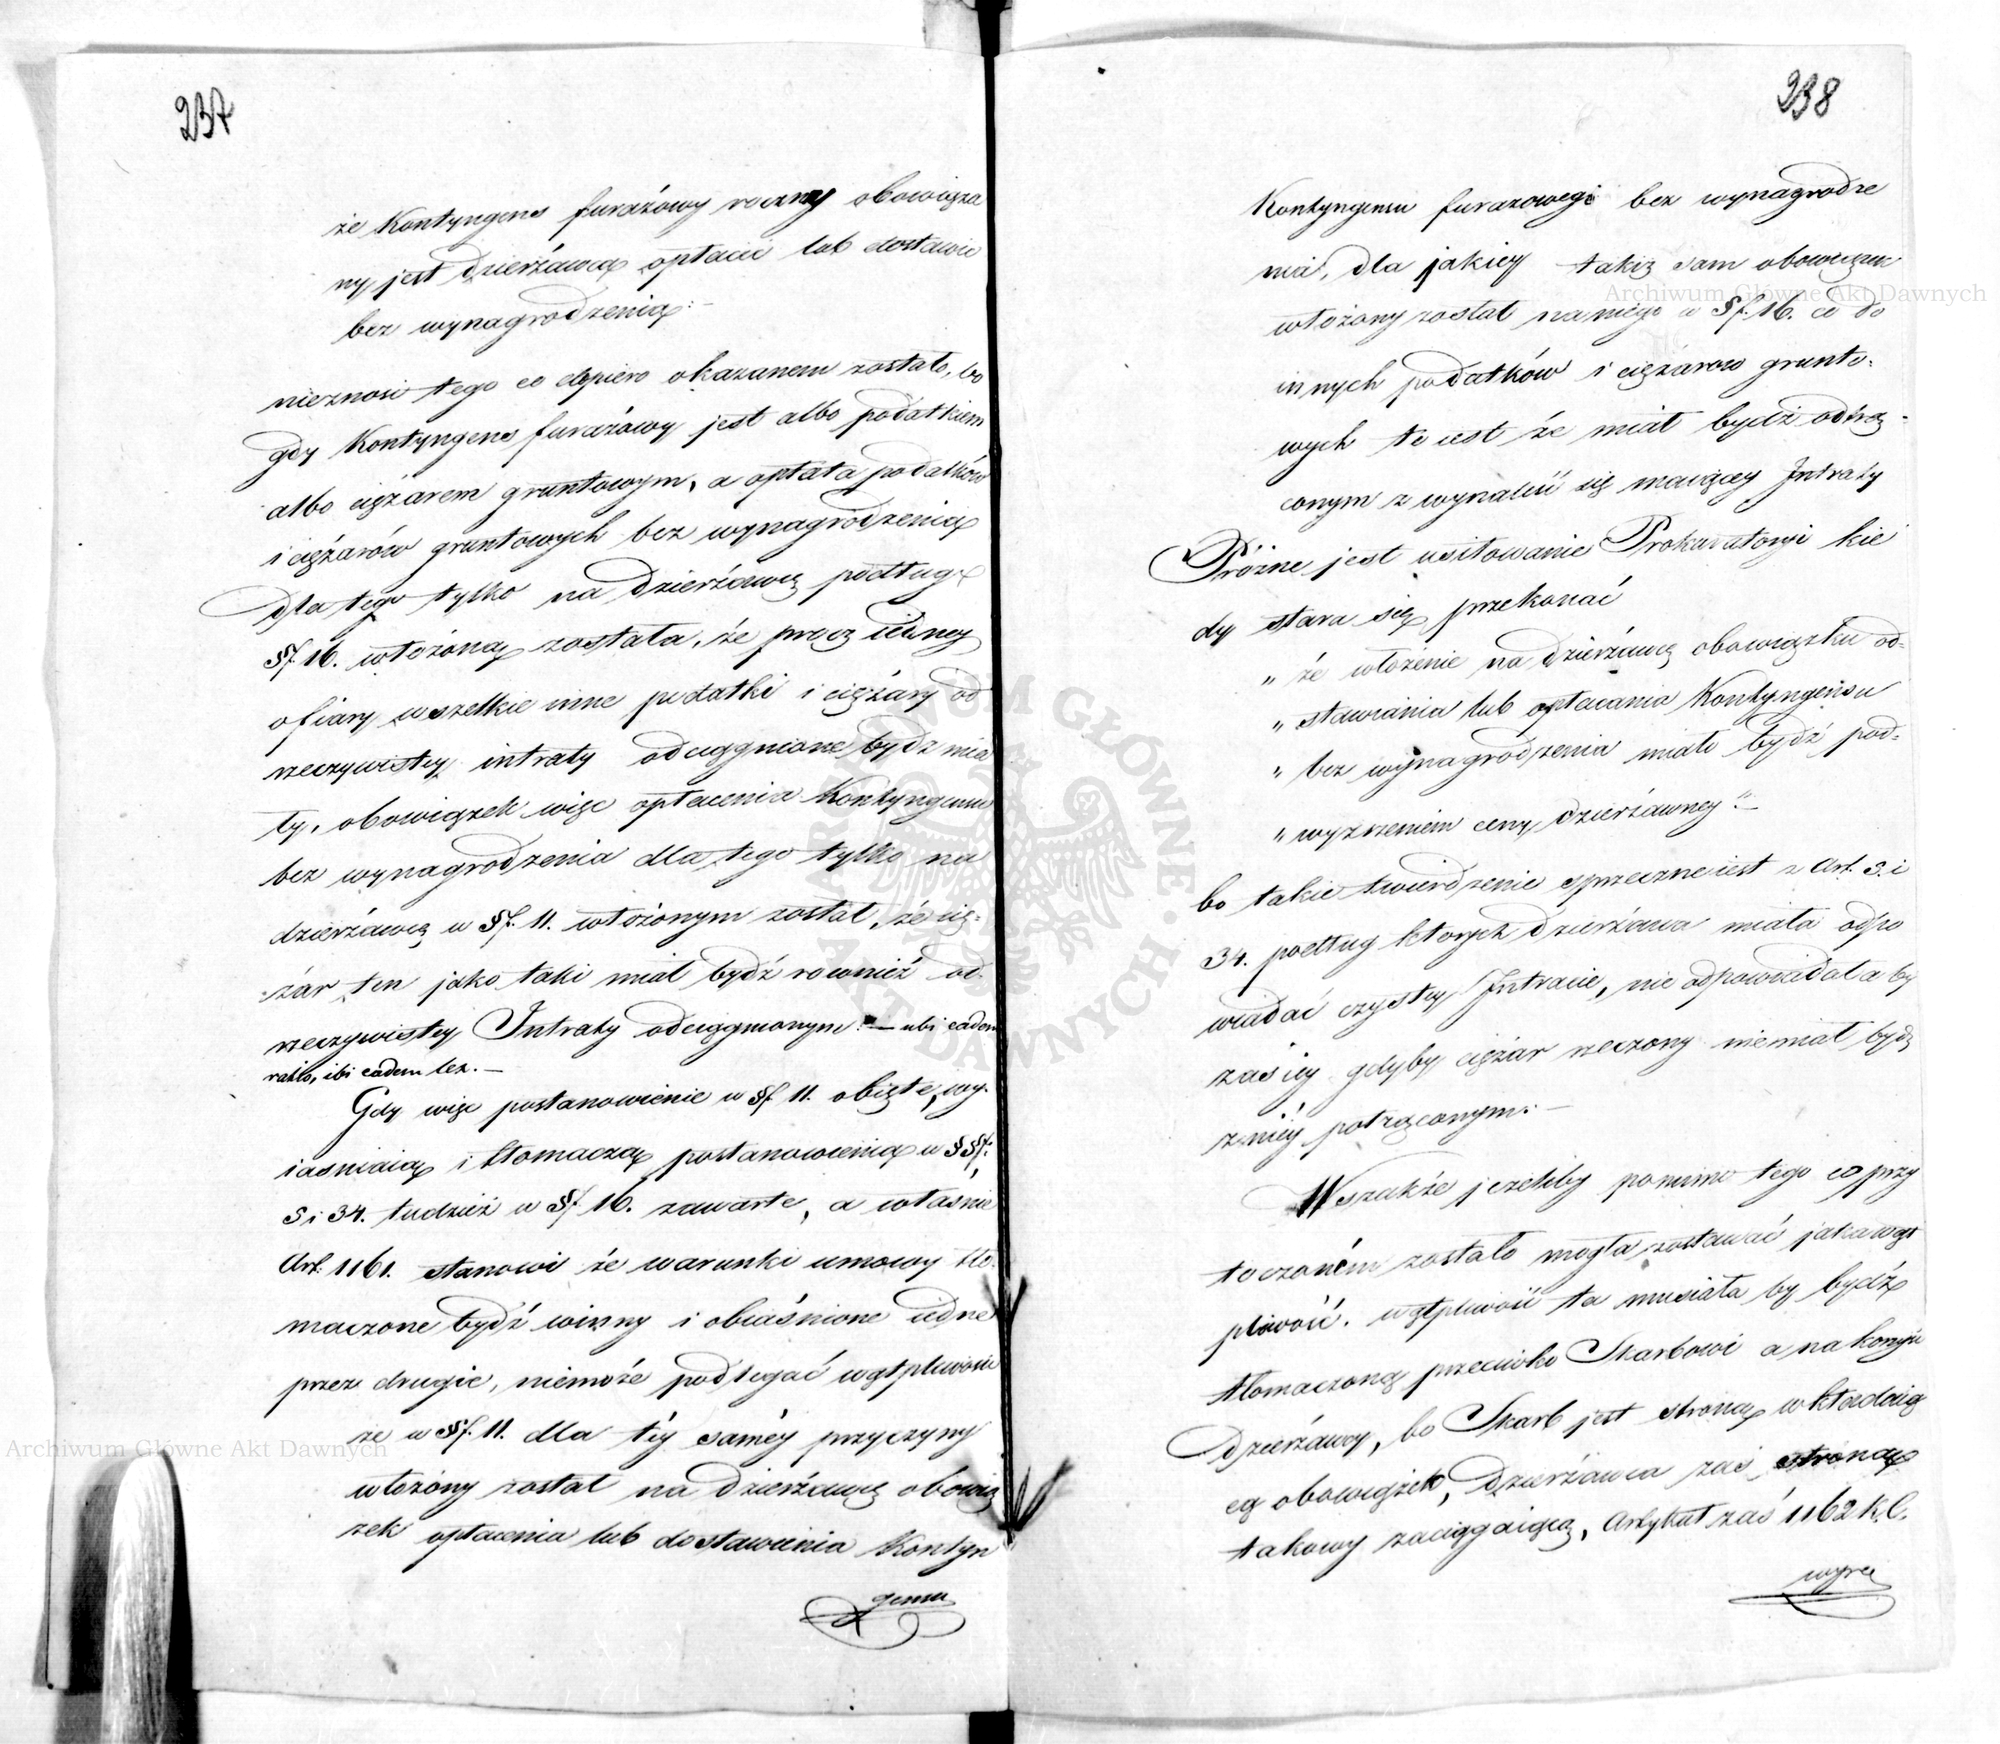 237
że Kontyngens furażowy roczny obowiąza
ny jest Dzierżawca opłacić lub dostawić
bez wynagrodzenia.–
nieznosi tego co dopiero okazanem zostało, bo
gdy Kontyngens furażowy jest albo podatkiem
albo ciężarem gruntowym, a opłata podatków
i ciężarów gruntowych bez wynagrodzenia
dla tego tylko na Dzierżawcę podług
§f. 16. włożoną została, że procz iedney
ofiary wszelkie inne podatki i ciężary od
rzeczywistey intraty odciągnione bydź mia
ły, obowiązek więc opłacenia Kontyngensu
bez wynagrodzenia dla tego tylko na
dzierżawcę w §f. 11. włożonym został, że cię-
żar ten jako taki miał bydź rownież od
rzeczywistey Intraty odciągnionym. — ubi eadem
ratio, ibi eadem lex. —
Gdy więc postanowienie w §f. 11. obięte, wy-
iasniaią i tłomaczą postanowienia w §§f.
5 i 34. tudzież w §f 16. zawarte, a własnie
Art: 1161. stanowi że warunki umowy tło-
maczone bydź winny i obiaśnione iedne
przez drugie, niemoże podlegać wątpliwości
że w §f. 11. dla téy saméy przyczyny
włożony został na Dzierżawcę obowią
zek opłacenia lub dostawienia Kontyn
gensu
238
Kontyngensu furazowego bez wynagrodze
nia, dla jakiey takiż sam obowiązek
włożony został na niego w §f. 16. co do
innych podatków i ciężarow grunto-
wych to iest że miał bydź odtrą-
conym z wynaleść się maiącey Intraty
Próżne jest usiłowanie Prokuratoryi kie
dy stara się przekonać
„ że włożenie na Dzierżawcę obowiązku od-
„ stawiania lub opłacania Kontyngensu
„ bez wynagrodzenia miało bydź pod-
„ wyższeniem ceny Dzierżawney“—
bo takie twierdzenie sprzeczne iest z Art. 5. i
34. podług ktorych Dzierżawa miała odpo
wiadać czystey Intracie, nie odpowiadała by
zaś iey gdyby ciężar rzeczony niemiał bydź
z niéy potrąconym.—
Wszakże jeżeliby pomimo tego co przy
toczoném zostało mogła zostawać jaka wąt
pliwość, wątpliwość ta musiała by bydź
tłomaczoną przeciwko Skarbowi a na korzyść
Dzierżawcy, bo Skarb jest stroną wkładaią
cą obowiązek, Dzierżawca zaś stroną
takowy zaciągaiącą, Artykuł zaś 1162 K. C.
wyra
Archiwum Główne Akt Dawnych
Archiwum Główne Akt Dawnych
ARCHIWUM GŁÓWNE AKT DAWNYCH